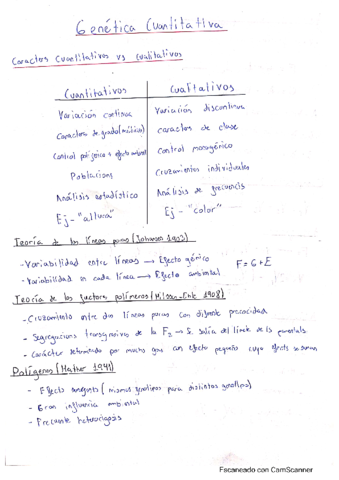 Genética Cuantitativa
Caracteres Cuantitativos vs Cualitativos
Cuantitativos Cualitativos
Variación continua Variación discontinua
Caracteres de grado (métrico) caracteres de clase
Control poligénico + efecto ambiental control monogénico
Poblaciones Cruzamientos individuales
Análisis estadístico Análisis de frecuencias
Ej - "altura" Ej - "color"
Teoría de las líneas puras (Johansen 1903)
- Variabilidad entre líneas → Efecto génico F = G + E
- Variabilidad en cada línea → Efecto ambiental
Teoría de los factores polímeros (Nilsson-Ehle 1908)
- Cruzamiento entre dos líneas puras con diferente precocidad
- Segregaciones transgresivas de la F2 → Se salía del límite de los parentales
- Carácter determinado por muchos genes con efecto pequeño cuyo efecto se suman
Poligenes (Mather 1941)
- Efectos semejantes (mismos genotipos para distintos genotipos)
- Gran influencia ambiental
- Frecuente heterocigosis
Escaneado con CamScanner